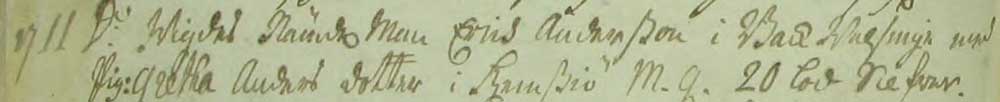 1711 D: Wigdes Nämde Man Erich Andersson i Back med
Pig: Gretha Anders dotter i M. g. 20 Lod Silfver.